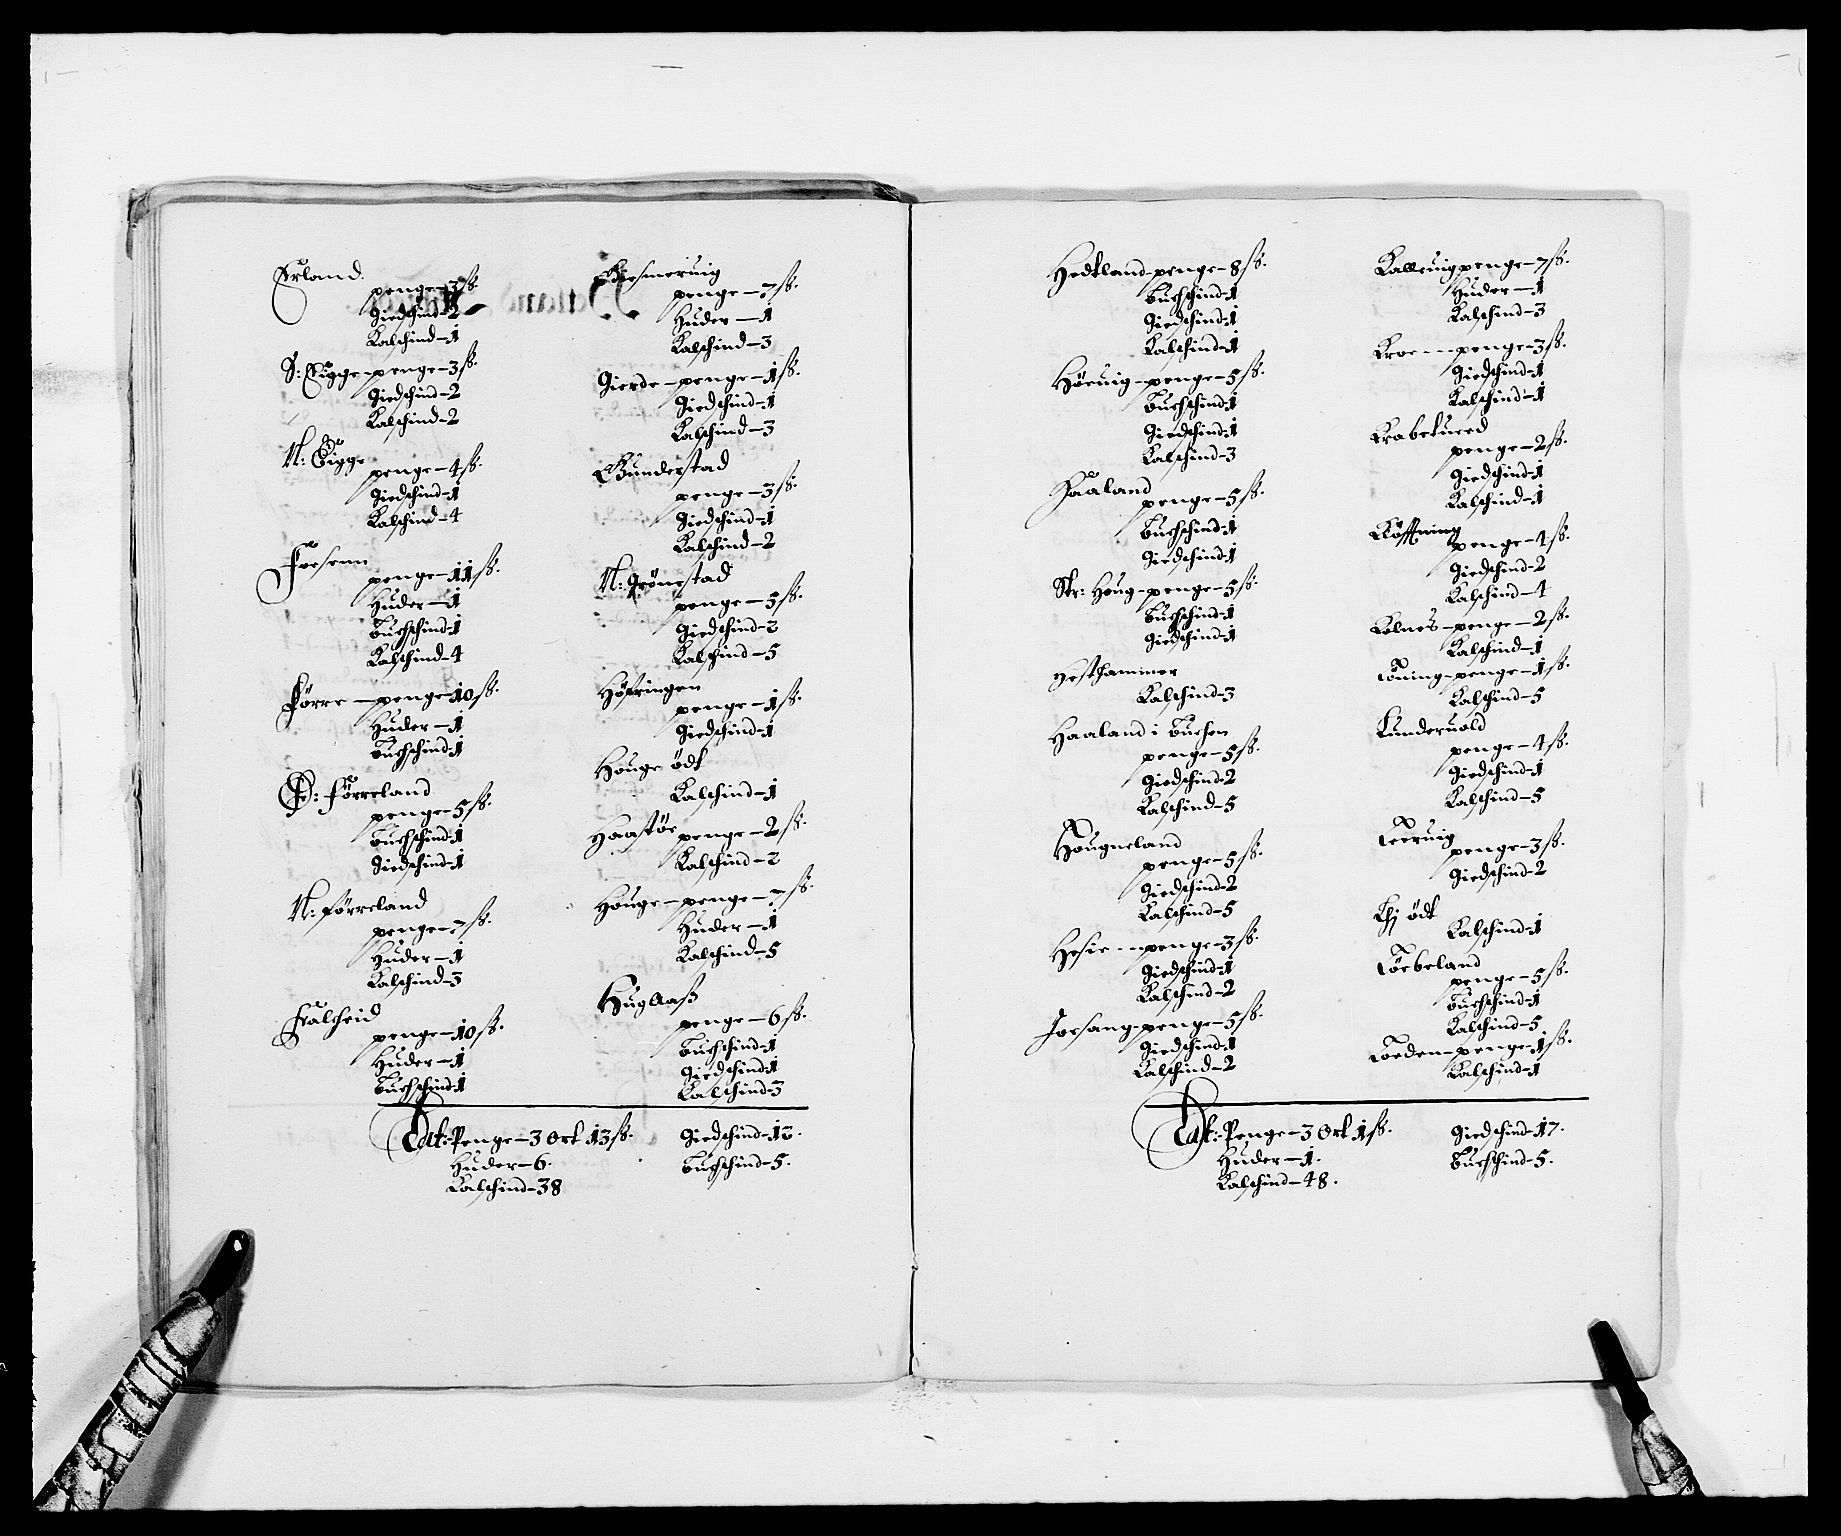 Erland.
penge-3 ß.
Giedschind-2
Kalschind-1
S: Eigge-penge-3 ß.
Giedschind-2
Kalschind-2
N: Eigge
penge-4 ß.
Giedschind-1
Kalschind-4
Foesenn
penge-11 ß.
Huder-1
Buchschind-1
Kalschind-4
Förre-penge-10 ß.
Huder-1
Buchschind-1
Förreland
penge-5 ß.
Buchschind-1
Giedschind-1
N: Förreland
penge-7 ß.
Huder-1
Kalschind-3
Falcheid
penge-10 ß.
Huder-1
Buchschind-1
Giesmeruig
penge-7 ß.
Huder-1
Kalschind-3
Gierde-penge-1 ß.
Giedschind-1
Kalschind-3
Gunderstad
penge-3 ß.
Giedschind-1
Kalschind-2
N: Grönestad
penge-5 ß.
Giedschind-2
Kalschind-5
Höfringen
penge-1 ß.
Giedschind-1
Houge ödt
Kalschind-1
Haastöe penge-2 ß.
Kalschind-2
Houge-penge-7 ß.
Huder-1
Kalschind-5
Huglaaß
penge-6 ß.
Buchschind-1
Giedschind-1
Kalschind-3
Lat: Penge-3 Ort 13 ß.
Huder-6.
Kalschind-38
Giedschind-13.
Buchschind-5.
Hedtland-penge-8 ß.
Buchschind-1
Giedschind-1
Kalschind-1
Höeuig-penge-5 ß.
Buchschind-1
Giedschind-1
Kalschind-3
Haaland
penge-5 ß.
Buchschind-1
Giedschind-1
Str: Houg-penge-5 ß.
Buchschind-1
Giedschind-1
Hesthammer
Kalschind-3
Haaland i Buchen
penge-5 ß.
Giedschind-2
Kalschind-5
Hougneland
penge-5 ß.
Giedschind-2
Kalschind-5
Hesie-penge-3 ß.
Giedschind-1
Kalschind-2
Joesang-penge-5 ß.
Giedschind-1
Kalschind-2
Kalleuig penge-7 ß.
Huder-1
Kalschind-3
Kroe-penge-3 ß.
Giedschind-1
Kalschind-1
Krabetueed
penge-2 ß.
Giedschind-1
Kalschind-1
Köffning
penge-4 ß.
Giedschind-2
Kalschind-4
Kolnes-penge-2 ß.
Kalschind-1
Löning-penge-1 ß.
Kalschind-5
Lunderuold
penge-4 ß.
Giedschind-1
Kalschind-5
Leeruig
penge-3 ß.
Giedschind-2
Lhj ödt
Kalschind-1
Löebeland
penge-5 ß.
Buchschind-1
Kalschind-5
Loeden-penge-1 ß.
Kalschind-1
Lat: Penge-3 Ort 1 ß.
Huder-1.
Kalschind-48.
Giedschind-17.
Buchschind-5.